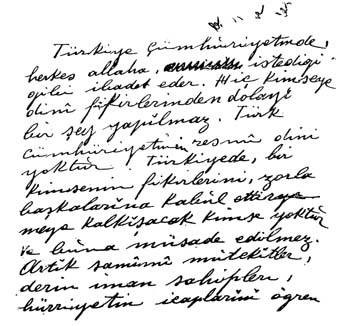 Türkiye Cümhüriyetinde,
herkes allaha, istediği
gibi ibadet eder. Hiç kimseye
dinî fikirlerinden dolayi
bir şey yapılmaz. Türk
Cümhüriyetinin resmî dini
yoktur. Türkiyede, bir
kimsenin fikirlerini, zorla
başkalarına kabul ettirye
meye kalkışacak kimse yoktur
ve buna müsade edilmez.
Artik samimî mütekitler,
derin iman sahipleri,
hürriyetin icaplarini öğren